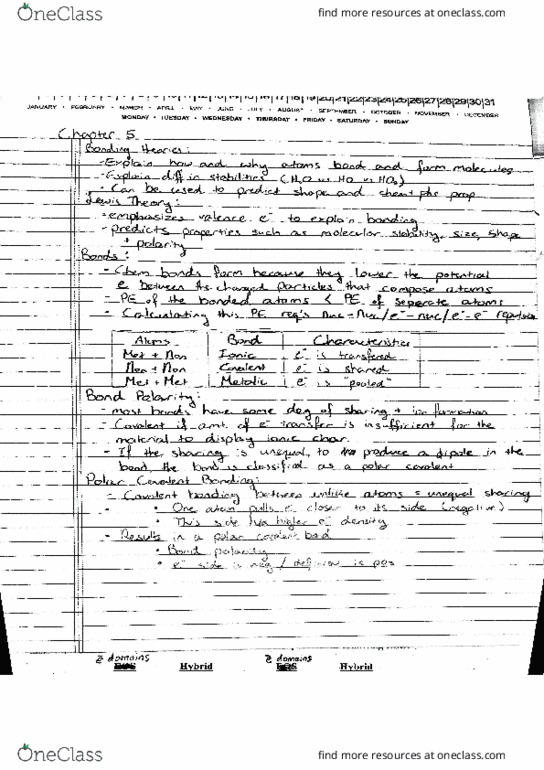 OneClass
find more resources at oneclass.com
20 21 22 23 24 25 26 27 28 29 30 31
JANUARY • FEBRUARY • MARCH • APRIL • MAY • JUNE • JULY • AUGUST • SEPTEMBER • OCTOBER • NOVEMBER • DECEMBER
MONDAY • TUESDAY • WEDNESDAY • THURSDAY • FRIDAY • SATURDAY • SUNDAY
Chapter 5
Bonding theories:
- Explain how and why atoms bond and form molecules
- Explain diff in stabilities (H₂O vs HO vs HO₂)
- Can be used to predict shape and chem + phs prop
Lewis Theory:
- emphasizes valence e⁻ to explain bonding
- predicts properties such as molecular stability, size, shape
+ polarity
Bonds:
- Chem bonds form because they lower the potential
e between the charged particles that compose atoms
- PE of the bonded atoms < PE of seperate atoms
- Calculating this PE req's nuc-nuc/e⁻-nuc/e⁻-e⁻ repulsion
Atoms Bond Characteristics
Met + Non Ionic e⁻ is transfered
Non + Non Covalent e⁻ is shared
Met + Met Metalic e⁻ is "pooled"
Bond Polarity:
- most bonds have some deg of sharing + ion formation
- Covalent if amt. of e⁻ transfer is insufficient for the
material to display ionic char.
- If the sharing is unequal to produce a dipole in the
bond, the bond is classified as a polar covalent
Polar Covalent Bonding:
- Covalent bonding between unlike atoms = unequal sharing
• One atom pulls e⁻ closer to its side (negative)
• This side has higher e⁻ density
- Results in a polar covalent bond
• Bond polarity
• e⁻ side is neg / is pos
2 domains Hybrid 2 domains Hybrid
OneClass
find more resources at oneclass.com